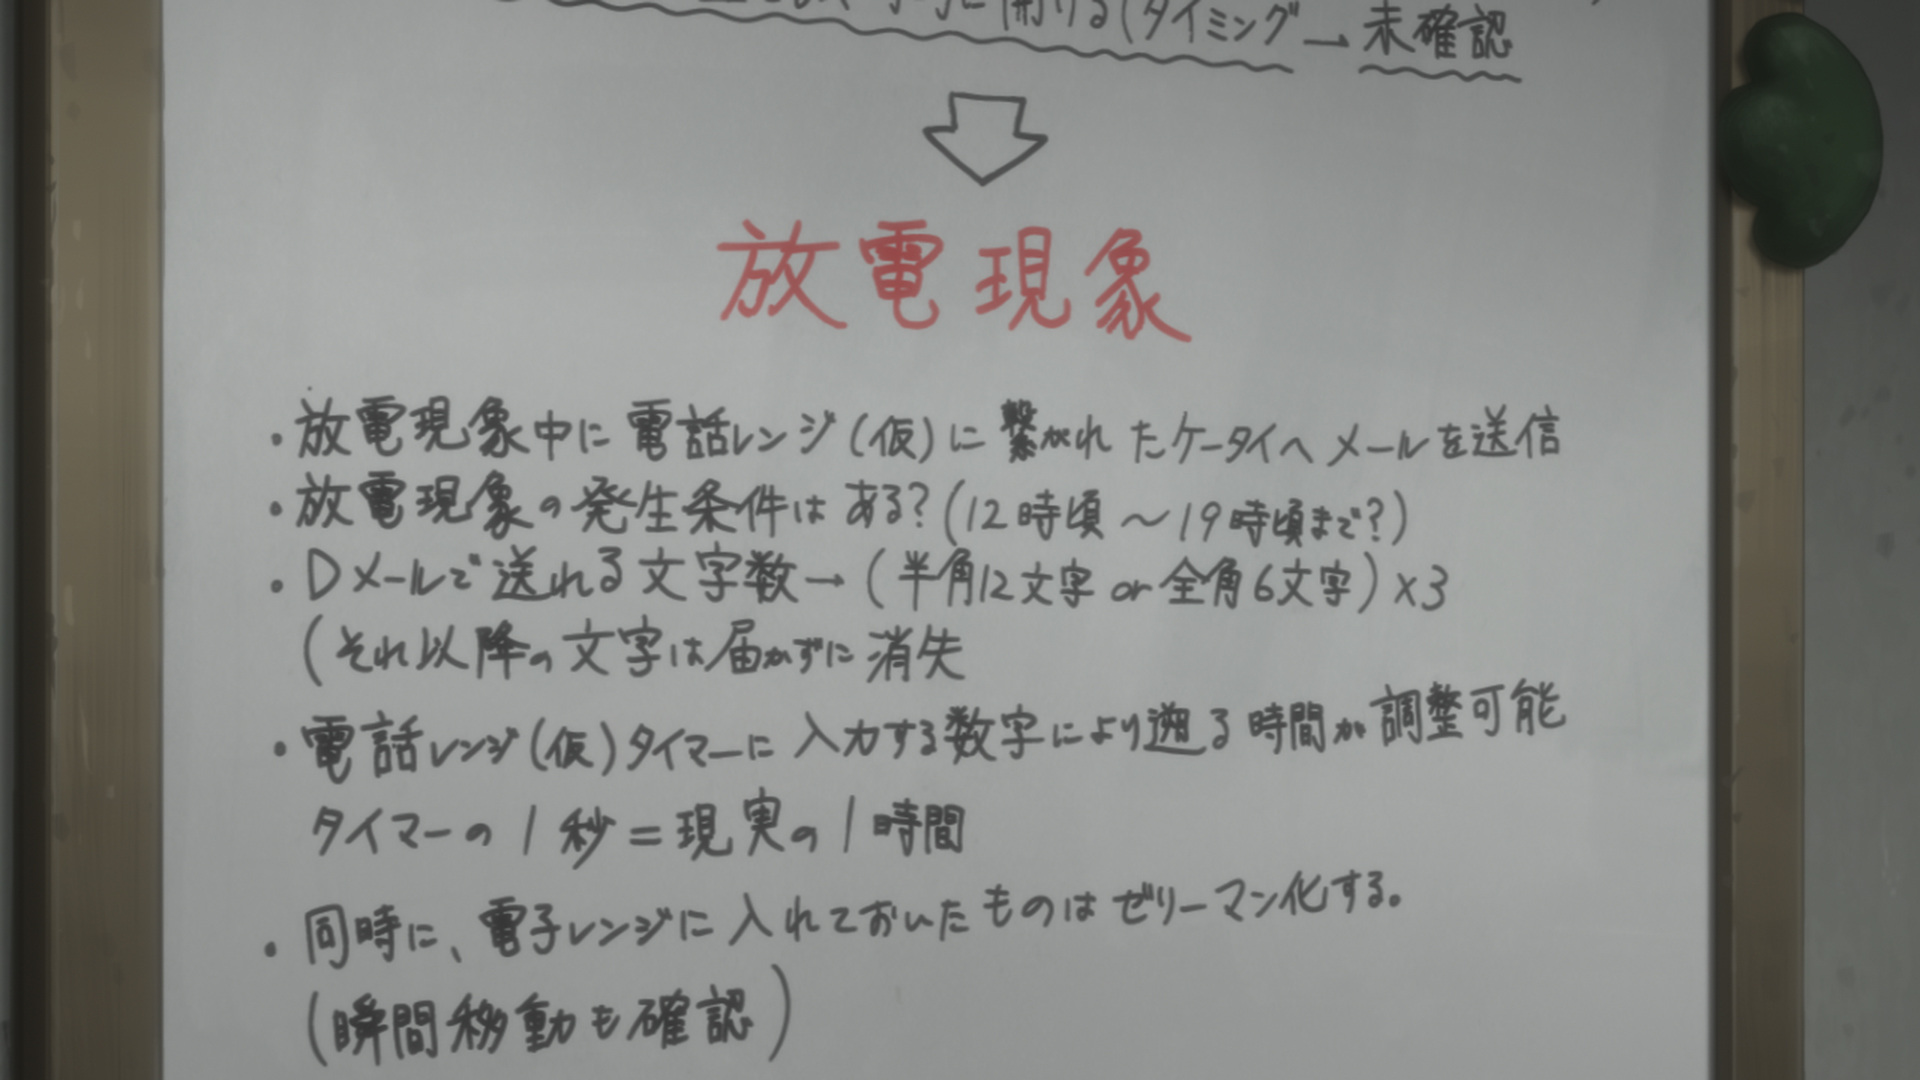 に開ける(タイミング→未確認
放電現象
・放電現象中に電話レンジ(仮)に繋がれたケータイへメールを送信
・放電現象の発生条件はある?(12時頃〜19時頃まで?)
・Dメールで送れる文字数→(半角12文字 or 全角6文字)×3
(それ以降の文字は届かずに消失
・電話レンジ(仮)タイマーに入力する数字により遡る時間が調整可能
タイマーの1秒=現実の1時間
・同時に、電子レンジに入れておいたものはゼリーマン化する。
(瞬間移動も確認)